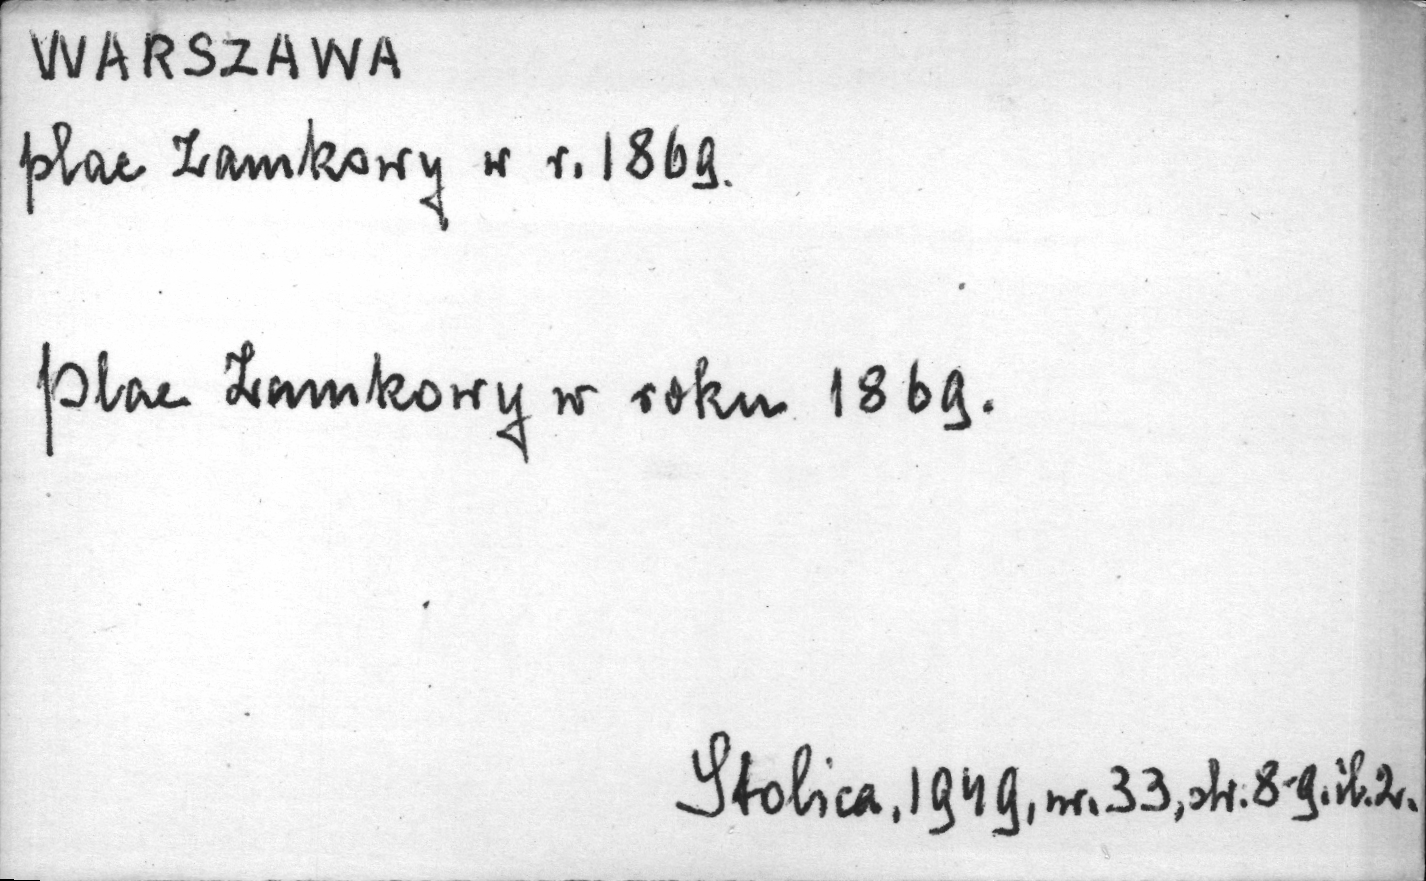 WARSZAWA
plac Zamkowy w r. 1869.
Plac Zamkowy w roku 1869.
Stolica, 1949, nr. 33, str. 8-9. il. 2.